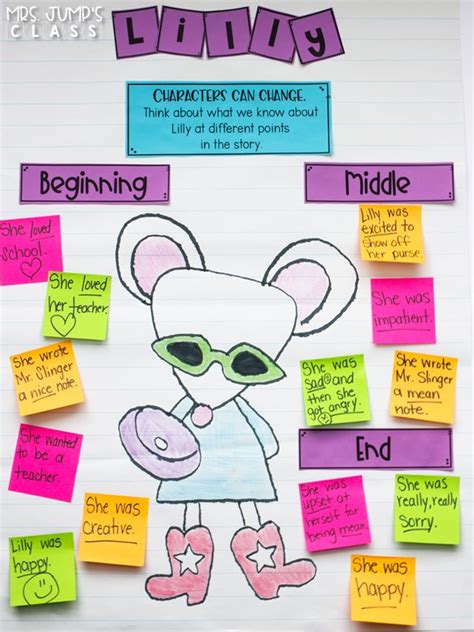 MRS. JUMP'S
CLASS
Lilly
CHARACTERS CAN CHANGE.
Think about what we know about
Lilly at different points
in the story.
Beginning
She loved
school.
She loved
her teacher.
She wrote
Mr. Slinger
a nice note.
She wanted
to be a
teacher.
She was
Creative.
Lilly was
happy.
Middle
Lilly was
excited to
show off
her purse.
She was
impatient.
She was
sad and
then she
got angry.
She wrote
Mr. Slinger
a mean
note.
End
She was
upset at
herself for
being mean.
She was
really, really
sorry.
She was
happy.